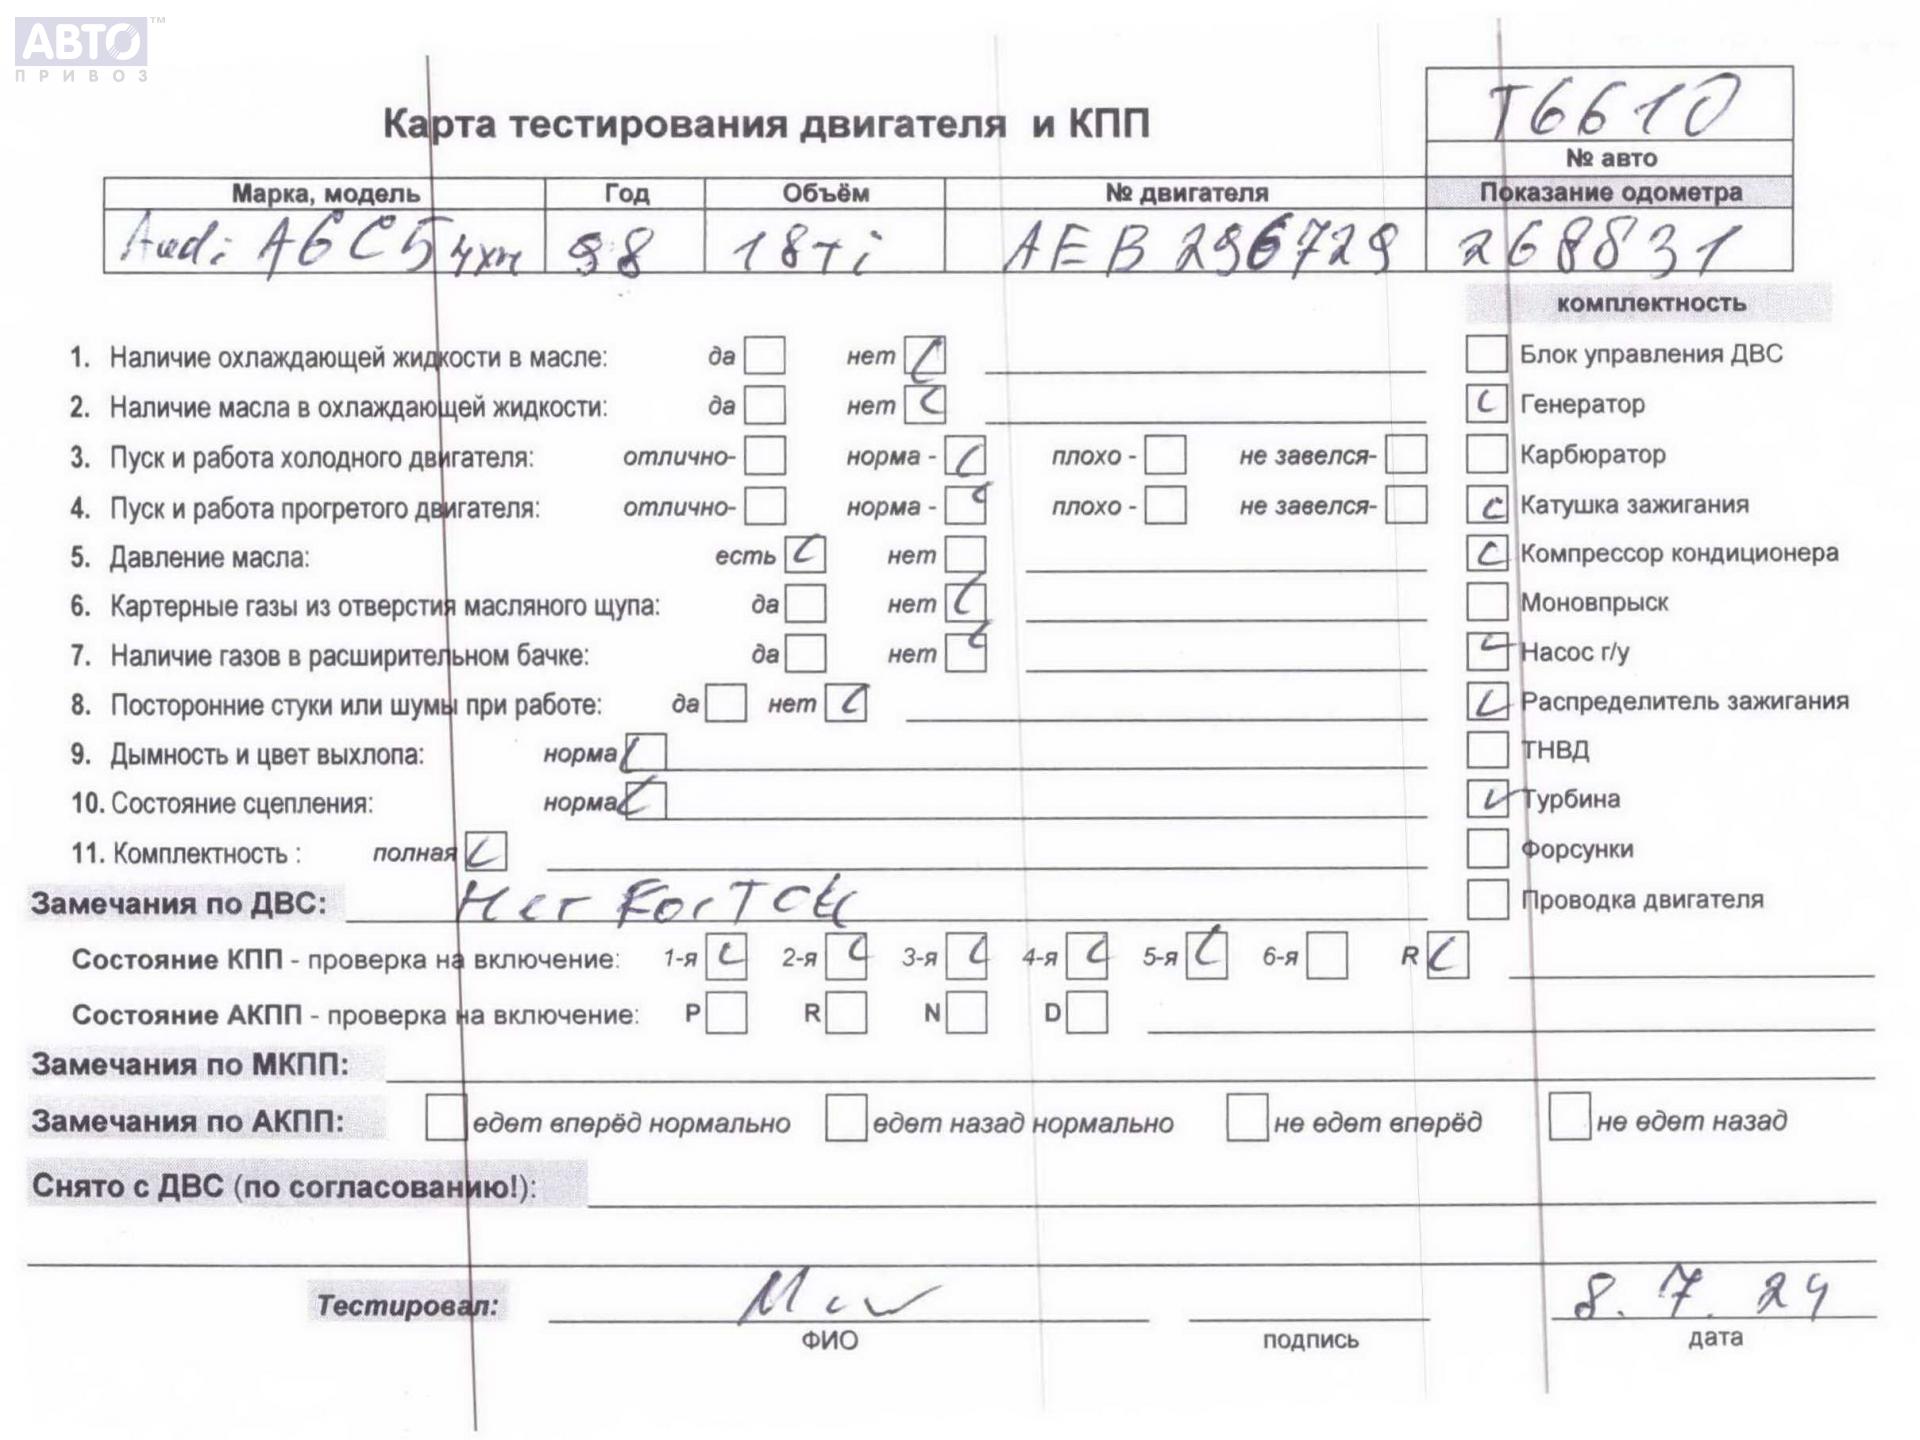 АВТО™
ПРИВОЗ
Т6610
Карта тестирования двигателя и КПП
№ авто
Марка, модель Год Объём № двигателя Показание одометра
Audi A6C5 98 18ti AEB 296729 268831
комплектность
1. Наличие охлаждающей жидкости в масле: да нет Блок управления ДВС
2. Наличие масла в охлаждающей жидкости: да нет Генератор
3. Пуск и работа холодного двигателя: отлично- норма - плохо - не завелся- Карбюратор
4. Пуск и работа прогретого двигателя: отлично- норма - плохо - не завелся- Катушка зажигания
5. Давление масла: есть нет Компрессор кондиционера
6. Картерные газы из отверстия масляного щупа: да нет Моновпрыск
7. Наличие газов в расширительном бачке: да нет Насос г/у
8. Посторонние стуки или шумы при работе: да нет Распределитель зажигания
9. Дымность и цвет выхлопа: норма ТНВД
10. Состояние сцепления: норма Турбина
11. Комплектность : полная Форсунки
Замечания по ДВС: Нет Проводка двигателя
Состояние КПП - проверка на включение: 1-я 2-я 3-я 4-я 5-я 6-я R
Состояние АКПП - проверка на включение: P R N D
Замечания по МКПП:
Замечания по АКПП: едет вперёд нормально едет назад нормально не едет вперёд не едет назад
Снято с ДВС (по согласованию!):
Тестировал: 8.7.24
ФИО подпись дата